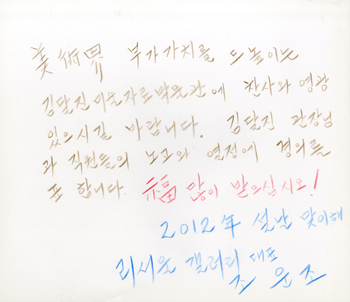 美術界 부가가치를 드높이는
김달진미술자료박물관에 찬사와 영광
있으시길 바랍니다. 김달진 관장님
과 직원들의 노고와 열정에 경의를
표 합니다. 福 많이 받으십시오!
2012年 설날 맞이해
리서울 갤러리 대표
조 운 조